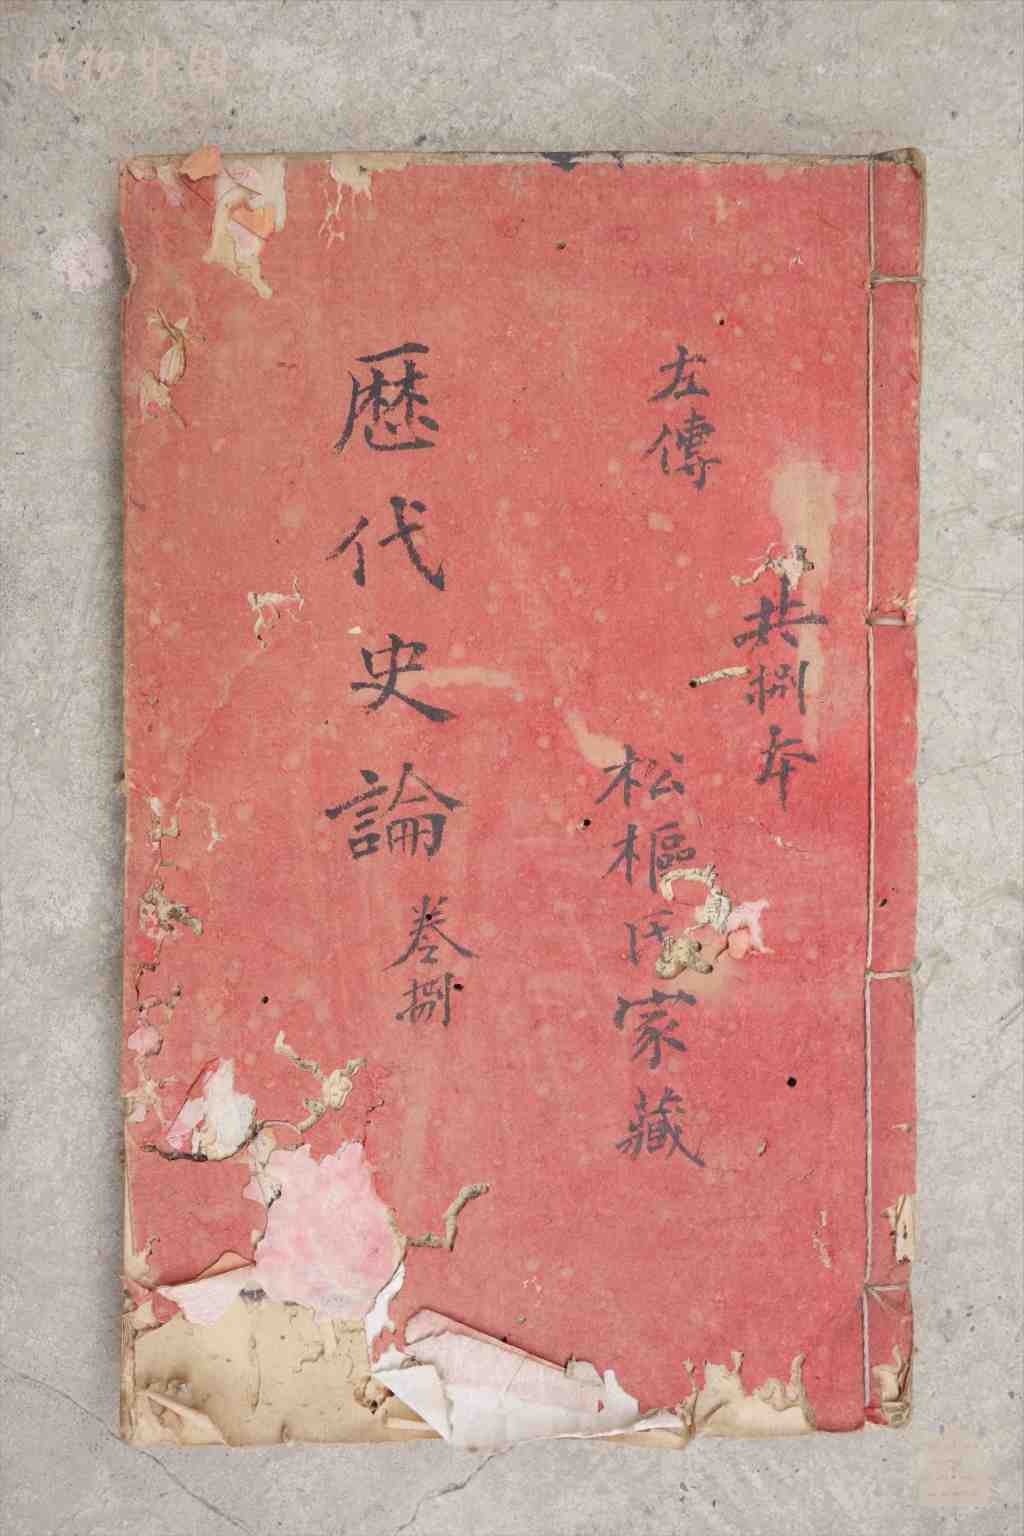 共捌本
左傳
松樞氏家藏
歷代史論
卷捌